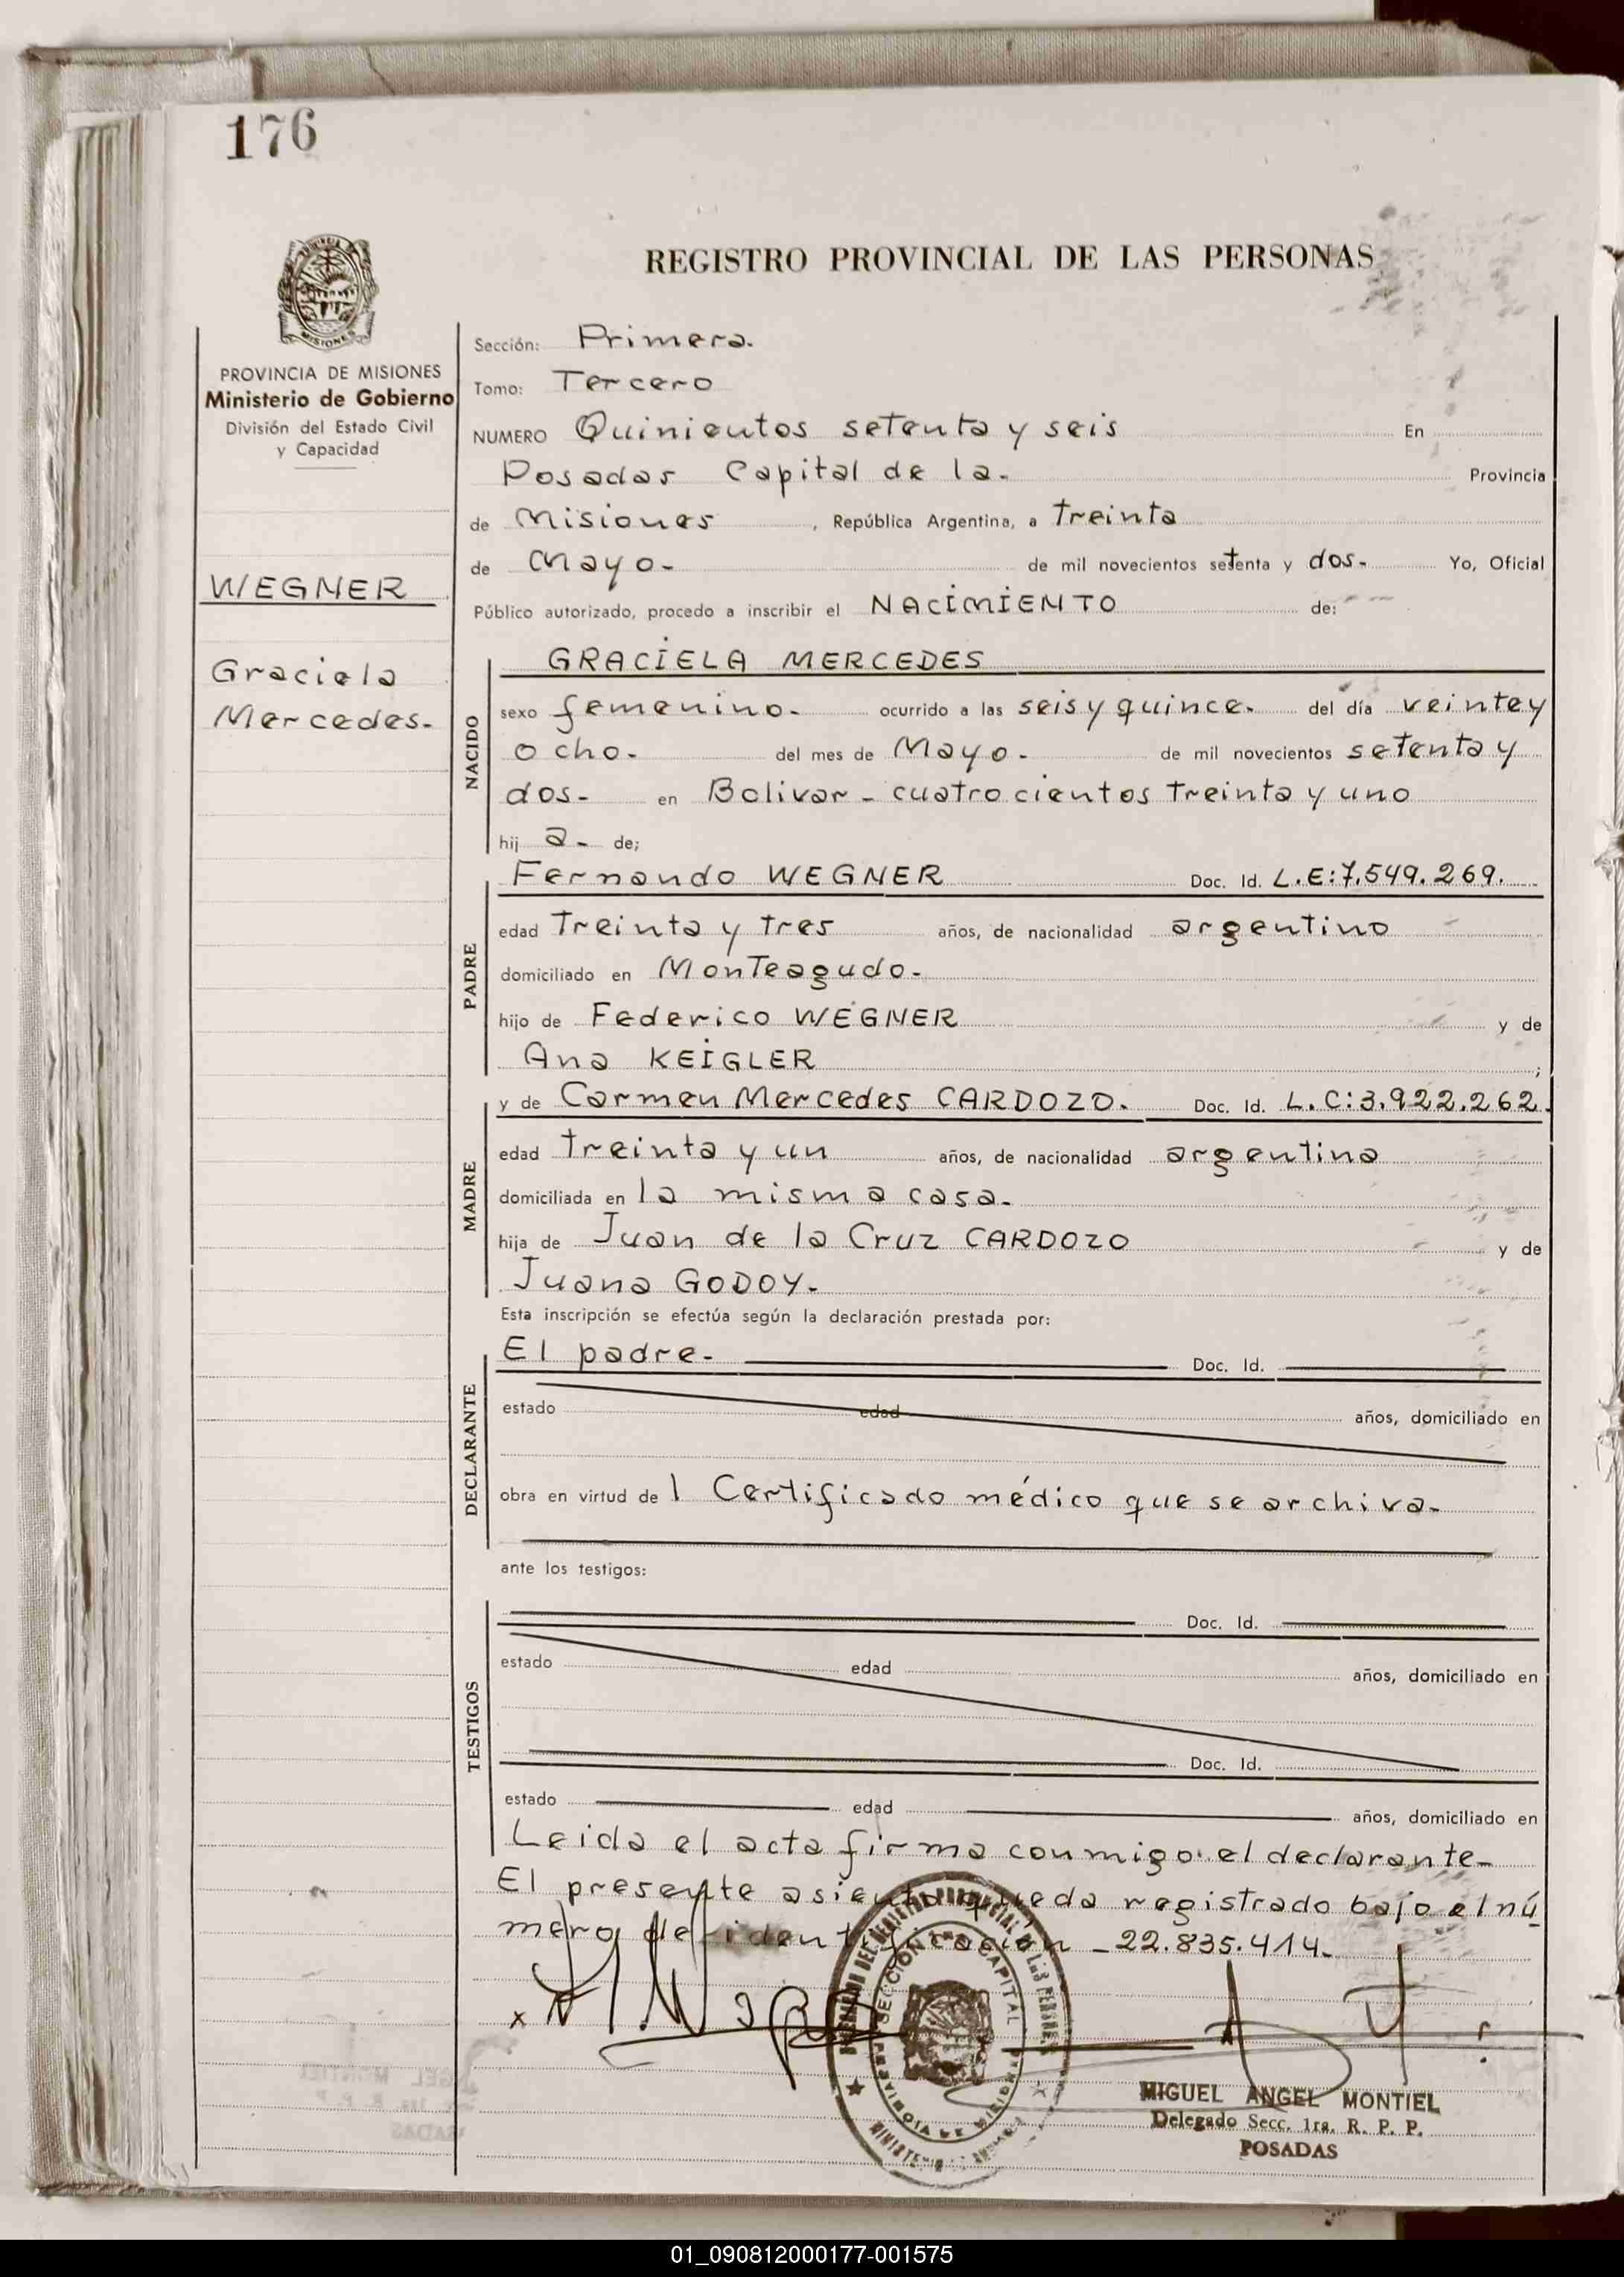 176
REGISTRO PROVINCIAL DE LAS PERSONAS
MISIONES
PROVINCIA DE MISIONES
Ministerio de Gobierno
División del Estado Civil
y Capacidad
WEGNER
Graciela
Mercedes.
Sección: Primera.
Tomo: Tercero
NUMERO Quinientos setenta y seis En
Posadas Capital de la. Provincia
de Misiones, República Argentina, a Treinta
de Mayo. de mil novecientos setenta y dos. Yo, Oficial
Público autorizado, procedo a inscribir el NACIMIENTO de:
GRACIELA MERCEDES
NACIDO
sexo femenino. ocurrido a las seis y quince. del día veinte y
ocho. del mes de Mayo. de mil novecientos setenta y
dos. en Bolivar - cuatrocientos treinta y uno
hij a. de;
Fernando WEGNER Doc. Id. L.E:7.549.269.
PADRE
edad Treinta y tres años, de nacionalidad argentino
domiciliado en Monteagudo.
hijo de Federico WEGNER y de
Ana KEIGLER ;
y de Carmen Mercedes CARDOZO. Doc. Id. L.C:3.922.262.
MADRE
edad treinta y un años, de nacionalidad argentina
domiciliada en la misma casa.
hija de Juan de la Cruz CARDOZO y de
Juana GODOY.
Esta inscripción se efectúa según la declaración prestada por:
El padre. Doc. Id.
DECLARANTE
estado edad años, domiciliado en
obra en virtud de l Certificado médico que se archiva.
ante los testigos:
Doc. Id.
TESTIGOS
estado edad años, domiciliado en
Doc. Id.
estado edad años, domiciliado en
Leida el acta firma conmigo el declarante-
El presente asiento queda registrado bajo el nú
mero de identificación - 22.835.414.
x
SECCION 1RA CAPITAL
PROVINCIA DE MISIONES
MIGUEL ANGEL MONTIEL
Delegado Secc. 1ra. R. P. P.
POSADAS
01_090812000177-001575